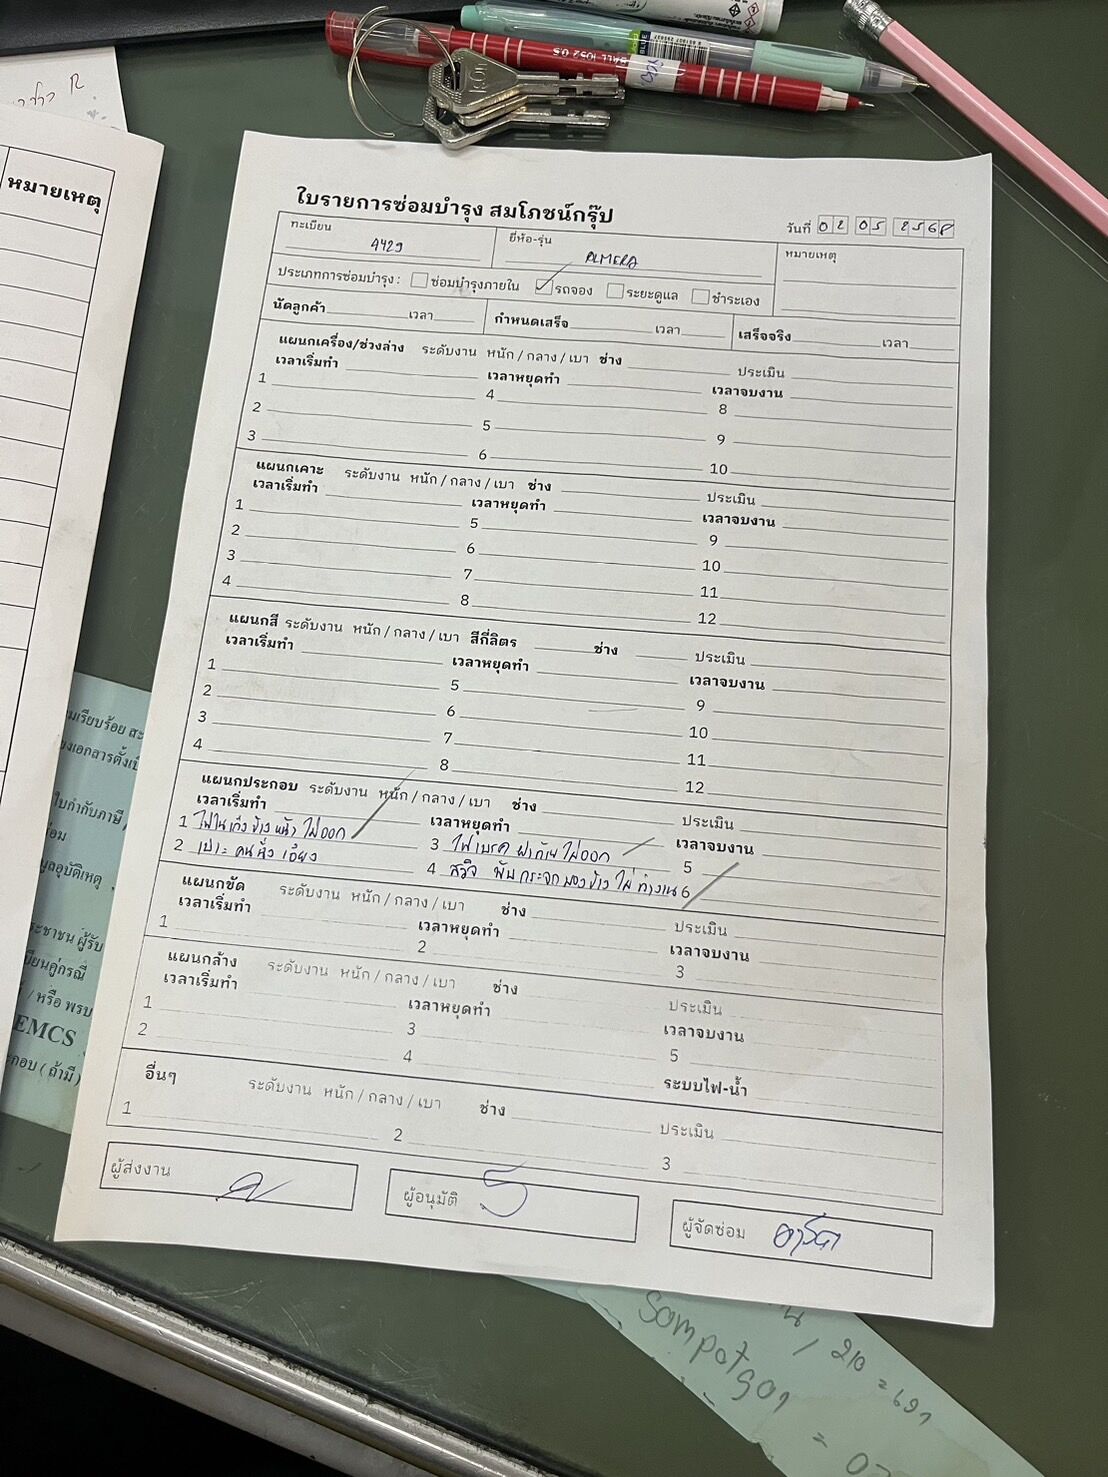 ใบรายการซ่อมบำรุง สมโภชน์กรุ๊ป
วันที่ 02 05 2568
ทะเบียน 4429 ยี่ห้อ-รุ่น ALMERA หมายเหตุ
ประเภทการซ่อมบำรุง : ซ่อมบำรุงภายใน ✓ รถจอง ระยะดูแล ชำระเอง
นัดลูกค้า เวลา กำหนดเสร็จ เวลา เสร็จจริง เวลา
แผนกเครื่อง/ช่วงล่าง ระดับงาน หนัก / กลาง / เบา ช่าง ประเมิน
เวลาเริ่มทำ เวลาหยุดทำ เวลาจบงาน
1 4 8
2 5 9
3 6 10
แผนกเคาะ ระดับงาน หนัก / กลาง / เบา ช่าง ประเมิน
เวลาเริ่มทำ เวลาหยุดทำ เวลาจบงาน
1 5 9
2 6 10
3 7 11
4 8 12
แผนกสี ระดับงาน หนัก / กลาง / เบา สีกี่ลิตร ช่าง ประเมิน
เวลาเริ่มทำ เวลาหยุดทำ เวลาจบงาน
1 5 9
2 6 10
3 7 11
4 8 12
แผนกประกอบ ระดับงาน หนัก / กลาง / เบา ช่าง ประเมิน
เวลาเริ่มทำ เวลาหยุดทำ เวลาจบงาน
1 ไฟในเก๋ง ข้างหน้า ไม่ออก 3 ไฟเบรค ฝาท้าย ไม่ออก 5
2 เบาะ คนนั่ง เอียง 4 สวิจ พับ กระจก มองข้าง ไม่ ทำงาน 6
แผนกขัด ระดับงาน หนัก / กลาง / เบา ช่าง ประเมิน
เวลาเริ่มทำ เวลาหยุดทำ เวลาจบงาน
1 2 3
แผนกล้าง ระดับงาน หนัก / กลาง / เบา ช่าง ประเมิน
เวลาเริ่มทำ เวลาหยุดทำ เวลาจบงาน
1 3 5
2 4 ระบบไฟ-น้ำ
อื่นๆ ระดับงาน หนัก / กลาง / เบา ช่าง ประเมิน
1 2 3
ผู้ส่งงาน ผู้อนุมัติ ผู้จัดซ่อม
หมายเหตุ
มเรียบร้อย
ใบกำกับภาษี
อุบัติเหตุ
ระชาชน ผู้รับ
/หรือ พรบ
EMCS
กอบ ( ถ้ามี )
/ 210 = 691